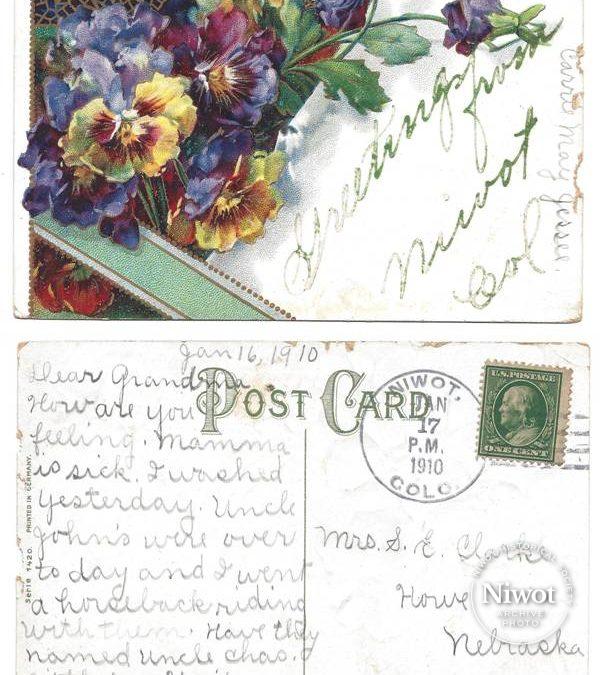 Greetings from
Niwot
Col
Carrie May Jessee.
Niwot
ARCHIVE
PHOTO
Jan 16, 1910
Dear Grandma
How are you
feeling. Mamma
is sick. I washed
yesterday. Uncle
John's were over
to day and I went
a horseback riding
with them. Have they
named Uncle Chas.
POST CARD
NIWOT,
JAN
17
P.M.
1910
COLO.
U.S. POSTAGE
ONE CENT
Serie 1420. PRINTED IN GERMANY.
Mrs. S. E. Clark
Howe
Nebraska
NIWOT HISTORICAL SOCIETY
Niwot
ARCHIVE
PHOTO